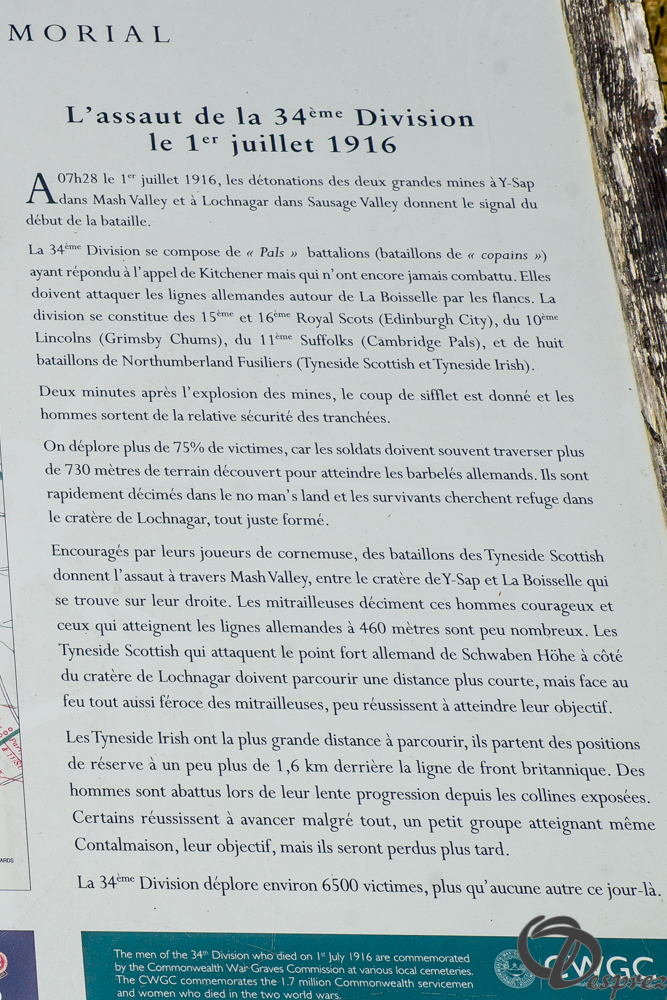 MORIAL
L'assaut de la 34ème Division
le 1er juillet 1916
A 07h28 le 1er juillet 1916, les détonations des deux grandes mines à Y-Sap
dans Mash Valley et à Lochnagar dans Sausage Valley donnent le signal du
début de la bataille.
La 34ème Division se compose de « Pals » battalions (bataillons de « copains »)
ayant répondu à l'appel de Kitchener mais qui n'ont encore jamais combattu. Elles
doivent attaquer les lignes allemandes autour de La Boisselle par les flancs. La
division se constitue des 15ème et 16ème Royal Scots (Edinburgh City), du 10ème
Lincolns (Grimsby Chums), du 11ème Suffolks (Cambridge Pals), et de huit
bataillons de Northumberland Fusiliers (Tyneside Scottish et Tyneside Irish).
Deux minutes après l'explosion des mines, le coup de sifflet est donné et les
hommes sortent de la relative sécurité des tranchées.
On déplore plus de 75% de victimes, car les soldats doivent souvent traverser plus
de 730 mètres de terrain découvert pour atteindre les barbelés allemands. Ils sont
rapidement décimés dans le no man's land et les survivants cherchent refuge dans
le cratère de Lochnagar, tout juste formé.
Encouragés par leurs joueurs de cornemuse, des bataillons des Tyneside Scottish
donnent l'assaut à travers Mash Valley, entre le cratère de Y-Sap et La Boisselle qui
se trouve sur leur droite. Les mitrailleuses déciment ces hommes courageux et
ceux qui atteignent les lignes allemandes à 460 mètres sont peu nombreux. Les
Tyneside Scottish qui attaquent le point fort allemand de Schwaben Höhe à côté
du cratère de Lochnagar doivent parcourir une distance plus courte, mais face au
feu tout aussi féroce des mitrailleuses, peu réussissent à atteindre leur objectif.
Les Tyneside Irish ont la plus grande distance à parcourir, ils partent des positions
de réserve à un peu plus de 1,6 km derrière la ligne de front britannique. Des
hommes sont abattus lors de leur lente progression depuis les collines exposées.
Certains réussissent à avancer malgré tout, un petit groupe atteignant même
Contalmaison, leur objectif, mais ils seront perdus plus tard.
La 34ème Division déplore environ 6500 victimes, plus qu'aucune autre ce jour-là.
ARDS
The men of the 34th Division who died on 1st July 1916 are commemorated
by the Commonwealth War Graves Commission at various local cemeteries.
The CWGC commemorates the 1.7 million Commonwealth servicemen
and women who died in the two world wars.
CWGC
Desprez